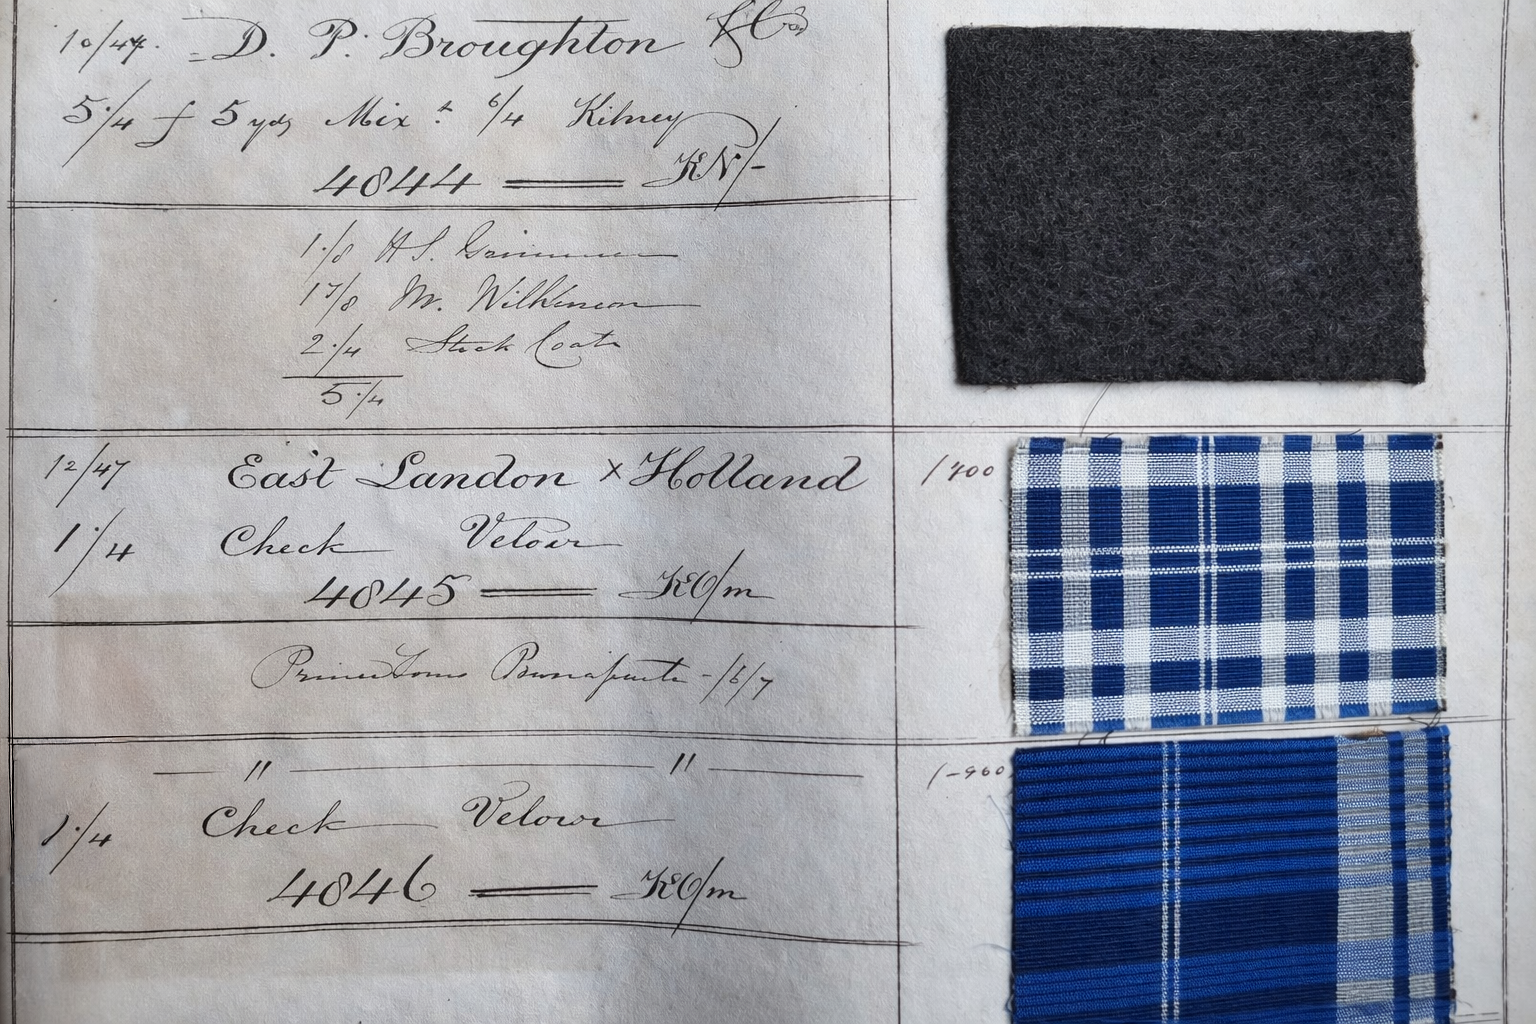 10/47. = D. P. Broughton & Co
5·/4 f 5 yds Mix 6/4 Kilney
4844 == KN/-
1·/8 H S.
17/8 M. Wilkinson
2·/4 Stock Coats
5·/4
12/47 East Landon x Holland 1700
1·/4 Check Velour
4845 == KO/m
Prince Louis Bonaparte - /6/7
— " — " —
1·/4 Check Velour
4846 == KO/m